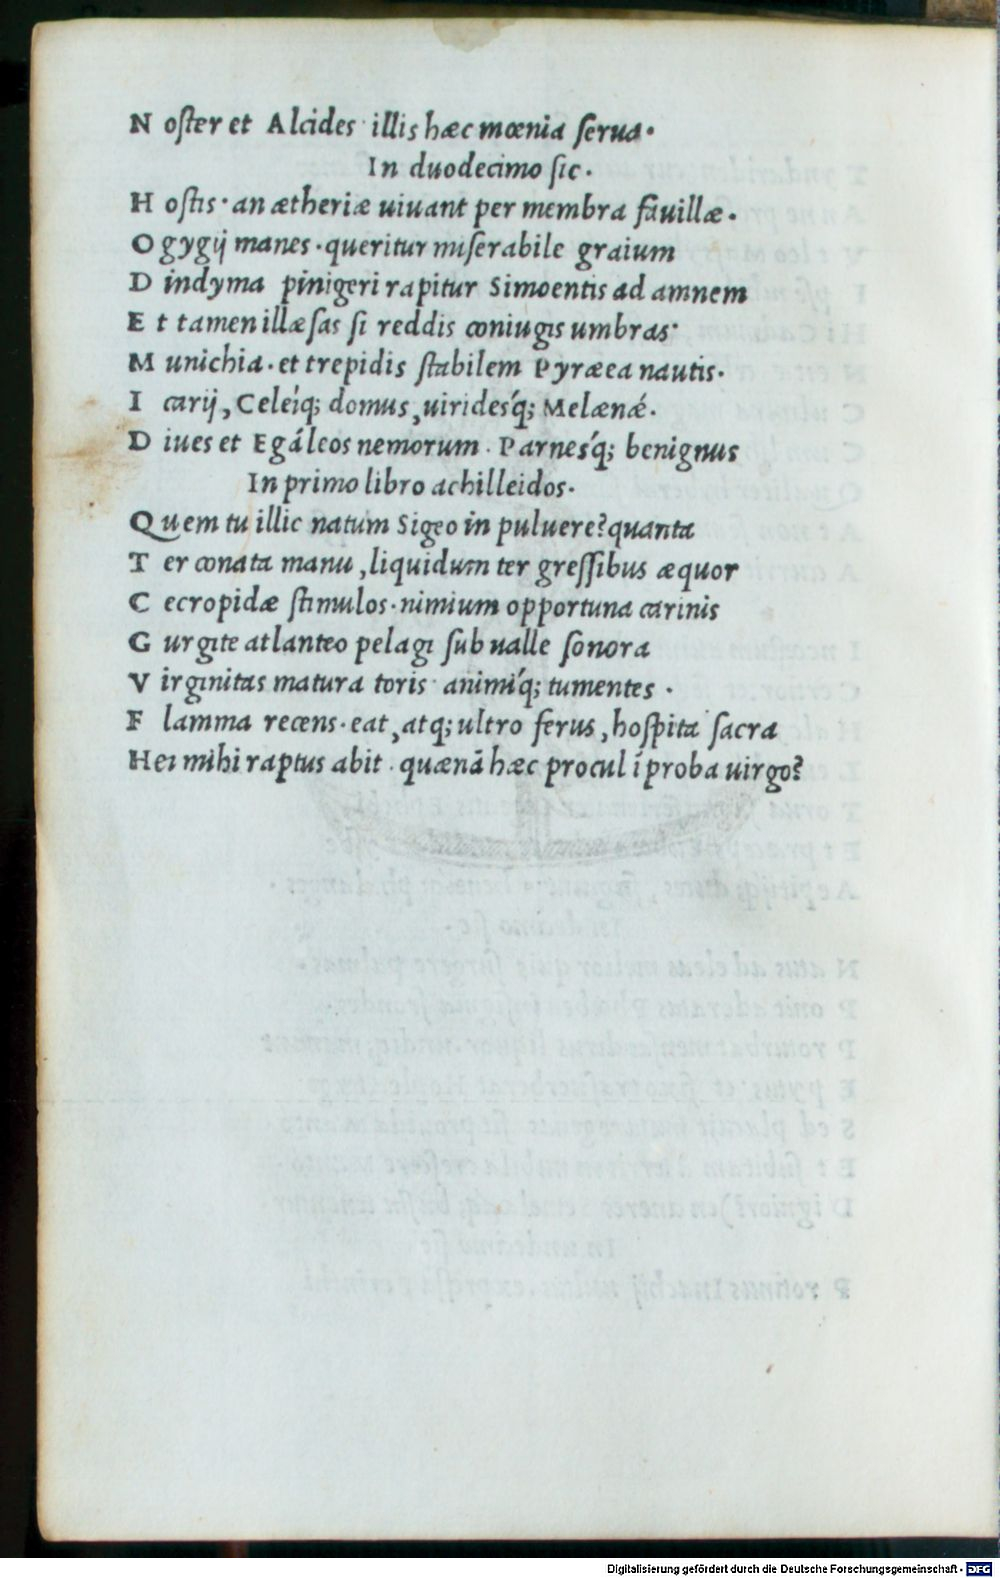 N oster et Alcides · illis hæc mœnia serua.
In duodecimo sic.
H ostis · an ætheriæ uiuant per membra fauillæ.
O gygij manes · queritur miserabile graium
D indyma pinigeri rapitur Simoentis ad amnem
E t tamen illæsas si reddis coniugis umbras·
M unichia · et trepidis stabilem Pyræea nautis.
I carij, Celeíq; domus, uiridesq́; Melænæ.
D iues et Egáleos nemorum · Parnesq́; benignus
In primo libro achilleidos.
Quem tu illic natum Sigeo in puluere? quanta
T er conata manu, liquidum ter gressibus æquor
C ecropidæ stimulos · nimium opportuna carinis
G urgite atlanteo pelagi sub ualle sonora
V irginitas matura toris · animíq́; tumentes ·
F lamma recens · eat, atq; ultro ferus, hospita sacra
Hei mihi raptus abit · quænā hæc procul īproba uirgo?
Digitalisierung gefördert durch die Deutsche Forschungsgemeinschaft - DFG